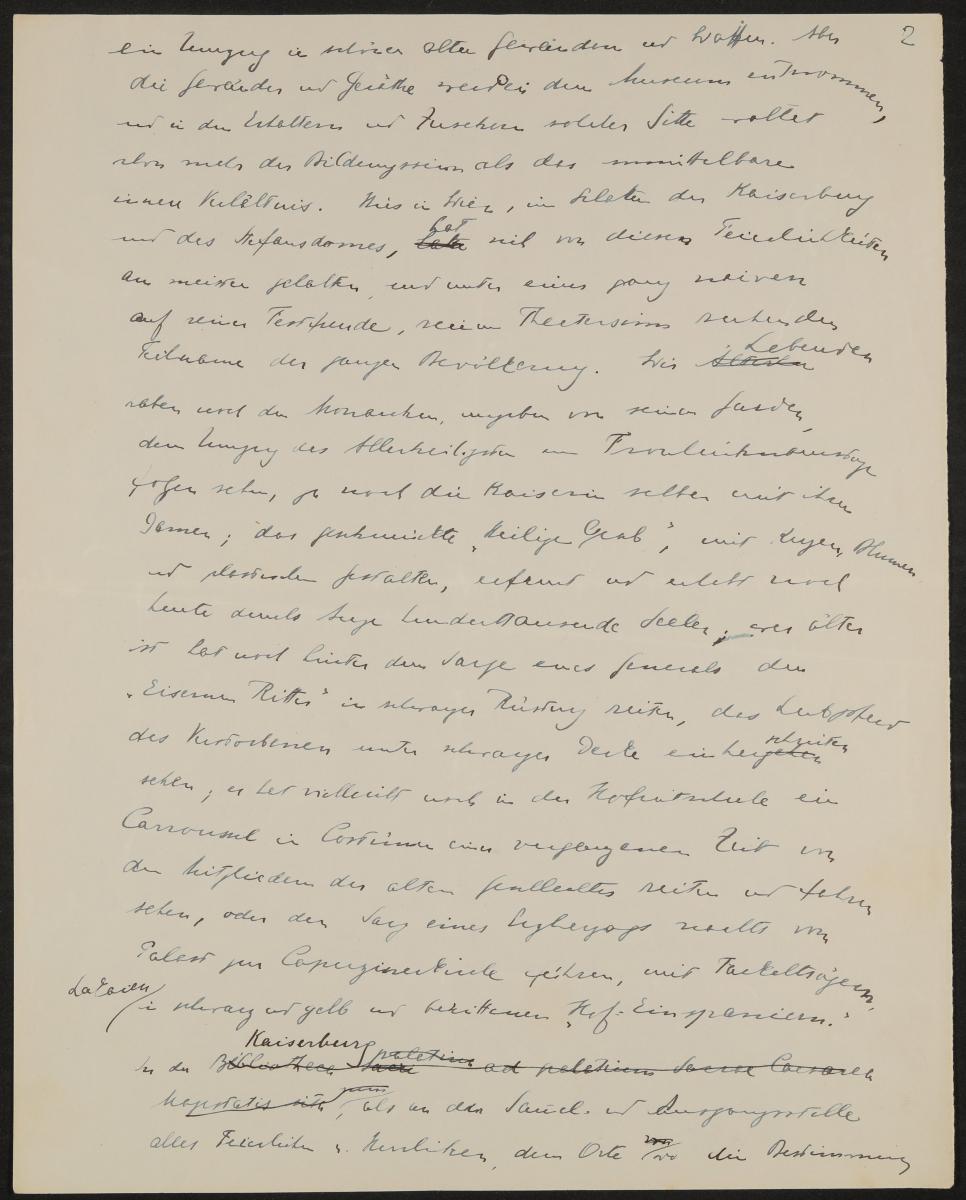 2
ein Umzug in schönen alten Gewändern und Waffen. Aber
die Gewänder und Geräthe werden dem Museum entnommen,
und in den Erhaltern und Zusehern solcher Sitte waltet
schon mehr der Bildungssinn als das unmittelbare
innere Verhältnis. Hier in Wien, im Schatten der Kaiserburg
und des Stefansdomes, hat sich von diesen Feierlichkeiten
am meisten gehalten, und unter einer ganz naiven
auf seiner Festfreude, seinem Theatersinn ruhenden
Teilname der ganzen Bevölkerung. Wir Lebenden
haben noch den Monarchen, umgeben von seinen Garden,
dem Umzug des Allerheiligsten am Fronleichnamstage
folgen sehn, ja noch die Kaiserin selber mit ihren
Damen; das geschmückte „Heilige Grab", mit Kerzen, Blumen
und plastischen Gestalten, erfreut und erhebt noch
heute jeweils hunderttausende Seelen; wer älter
ist hat noch hinter dem Sarge eines Generals den
„Eisernen Ritter" in schwarzer Rüstung reiten, das Leibpferd
des Verstorbenen unter schwarzer Decke einherschreiten
sehen; er hat vielleicht noch in der Hofreitschule ein
Carroussel in Costümen einer vergangenen Zeit von
den Mitgliedern der alten Geschlechter reiten und fahren
sehen, oder den Sarg eines Erzherzogs nachts vom
Palast zur Capuzinerkirche führen, mit Fackelträgern,
Lakaien in schwarz und gelb und berittenen „Hof-Einspaniern."
In der Kaiserburg Bibliotheca palatina sacra ad palatium Sacrae Caesareae
Majestatis sita, nun als an der Samel- und Ausgangsstelle
alles Feierlichen u. Herrlichen, dem Orte wo die Bestimmung